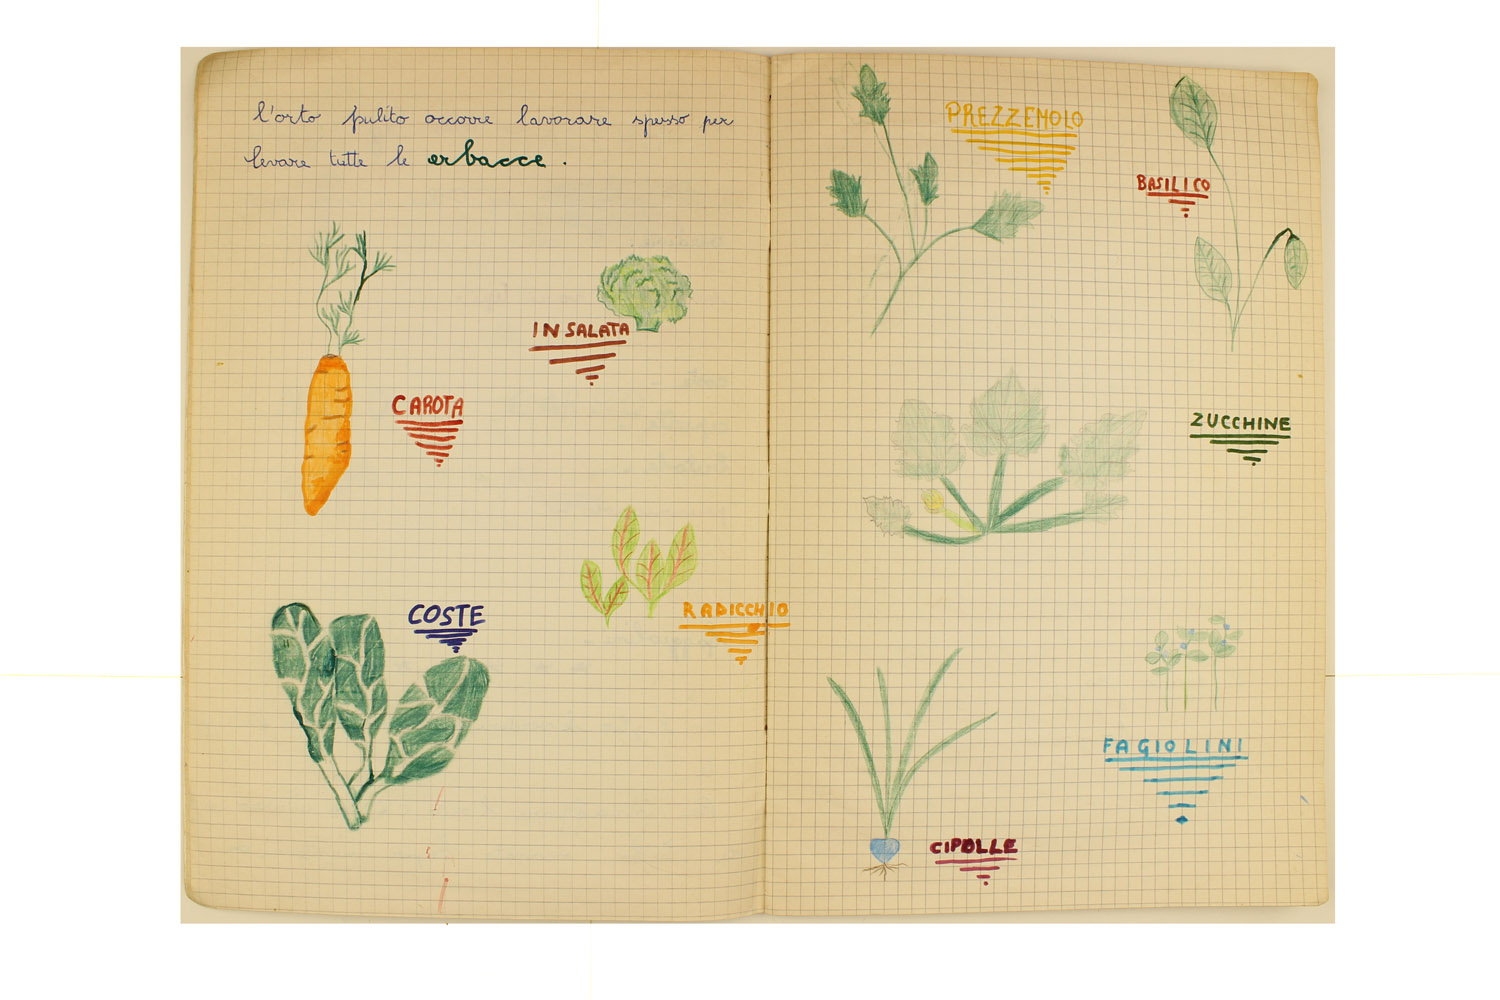 l'orto pulito occorre lavorare spesso per
levare tutte le erbacce.
INSALATA
CAROTA
RADICCHIO
COSTE
PREZZEMOLO
BASILICO
ZUCCHINE
FAGIOLINI
CIPOLLE